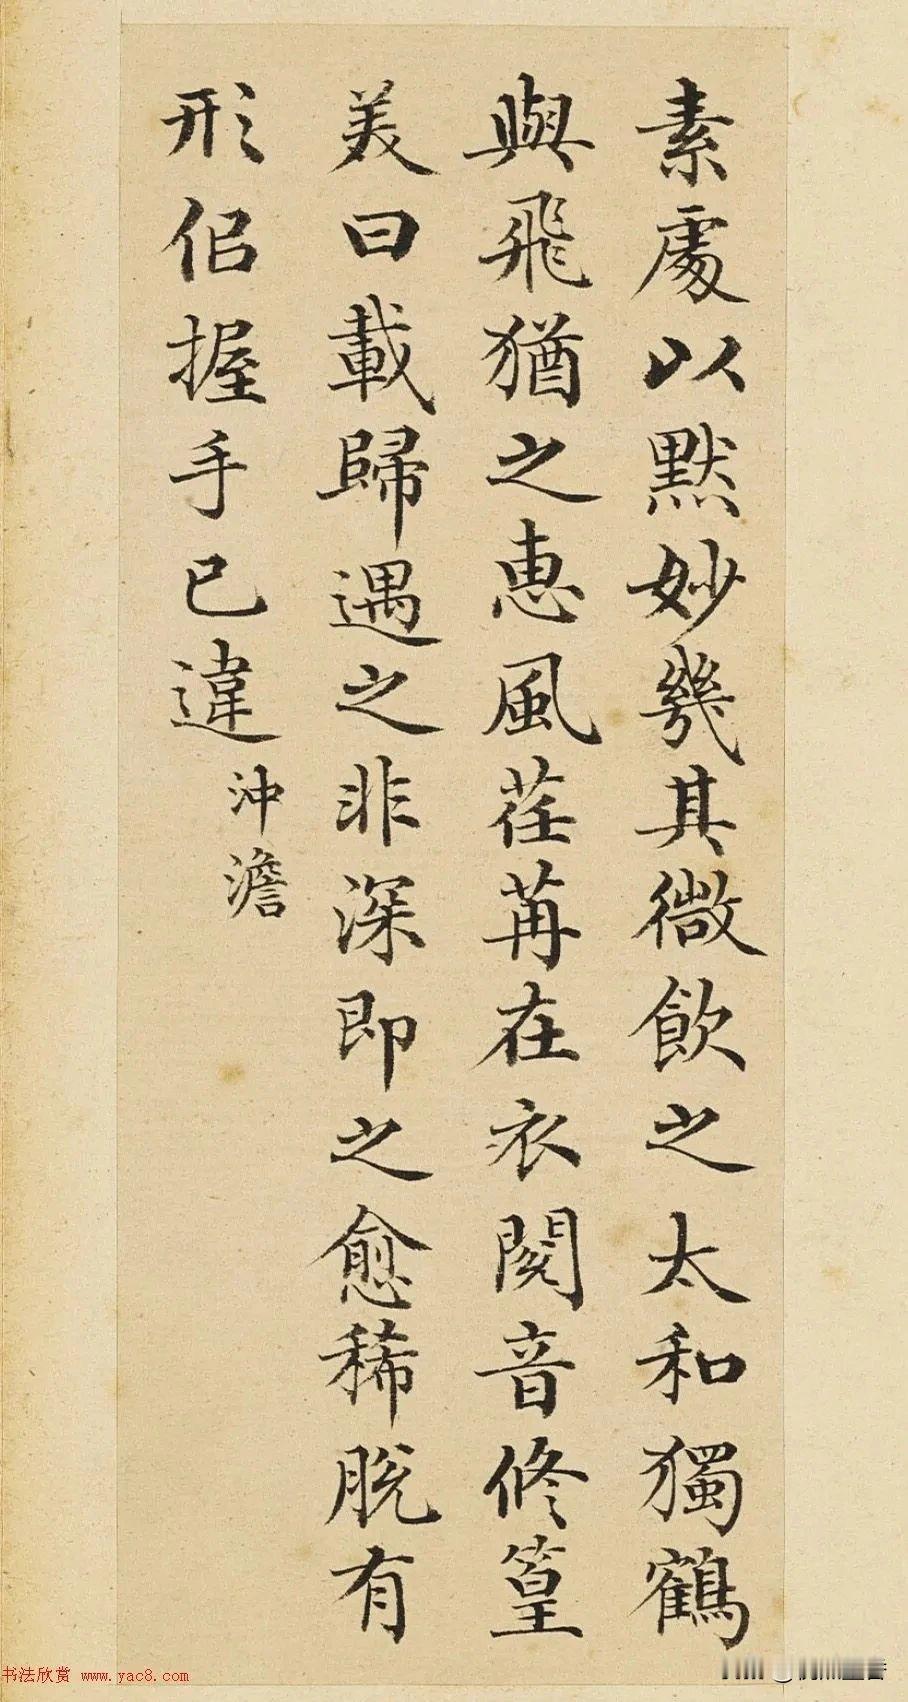 素處以默妙幾其微飲之太和獨鶴
與飛猶之惠風荏苒在衣閱音修篁
美曰載歸遇之非深即之愈稀脫有
形佀握手已違
沖澹
书法欣赏 www.yac8.com